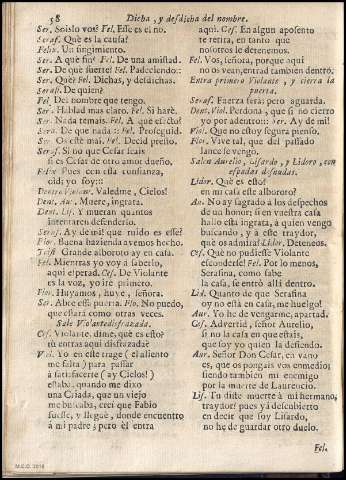 58 Dicha, y desdicha del nombre.
Ser. Soislo vos? Fel. Esse es el no.
Seraf. Què es la causa?
Felix. Un fingimiento.
Ser. A què fin? Fel. De una amistad.
Ser. De què suerte? Fel. Padeciendo::
Ser. Què? Fel. Dichas, y desdichas.
Seraf. De quien?
Fel. Del nombre que tengo.
Ser. Hablad mas claro. Fel. Si harè.
Ser. Nada temais. Fel. A què efecto?
Será. De què nada:: Fel. Proseguid.
Ser. Os estè mal. Fel. Decid presto.
Seraf. Si no que Cesar
si es Cesar de otro amor dueño.
Felix. Pues con essa confianza,
oid; yo soy::
Dentro Violant. Valedme, Cielos!
Dent. Aur. Muere, ingrata.
Dent. Lis. Y mueran quantos
intentaren defenderlo.
Seraf. Ay de mi! què ruido es esse?
Flor. Buena hazienda avemos hecho.
Trist. Grande alboroto ay en casa.
Fel. Mientras yo voy à saberlo,
aqui esperad. Ces. De Violante
es la voz, yo irè primero.
Flor. Huyamos, huye, señora.
Ser. Abre essa puerta. Flo. No puedo,
que estará como otras veces.
Sale Violante disfrazada.
Ces. Violante, dime, què es esto?
tù entras aqui disfrazada?
Viol. Yo en este trage (el aliento
me falta) para passar
à satisfacerte (ay Cielos!)
estaba, quando me dixo
una Criada, que un viejo
me buscaba, creì que Fabio
fuesse, y lleguè, donde encuentro
à mi padre; pero èl entra
aqui. Ces. En algun aposento
te retira, en tanto que
nosotros le detenemos.
Fel. Vos, señora, porque aqui
no os vean, entrad tambien dentro.
Entra primero Violante, y cierra la
puerta.
Seraf. Fuerza serà; pero aguarda.
Dent. Viol. Perdona, que si no cierro
yo por adentro:: Ser. Ay de mi!
Viol. Que no estoy segura pienso.
Flor. Vive tal, que del passado
lance se vengò.
Salen Aurelio, Lisardo, y Lidoro, con
espadas desnudas.
Lidor. Què es esto?
en mi casa este alboroto?
Au. No ay sagrado à los despechos
de un honor; si en vuestra casa
hallo esta ingrata, à quien vengo
buscando, y à este traydor,
què os admira? Lidor. Deteneos.
Ces. Què no pudiesse Violante
esconderse! Fel. Por lo menos,
Serafina, como sabe
la casa, se entrò allà dentro.
Lid. Quanto de que Serafina
oy no està en casa, me huelgo!
Aur. Yo he de vengarme, apartad.
Ces. Advertid, señor Aurelio,
si no la casa en que estais,
que soy yo quien la defiendo.
Aur. Señor Don Cesar, en vano
es, que os pongais vos enmedio;
siendo tambien mi enemigo
por la muerte de Laurencio.
Lis. Tù diste muerte à mi hermano,
traydor? pues yà descubierto
en decir que soy Lisardo,
no he de guardar otro duelo.
Fel.